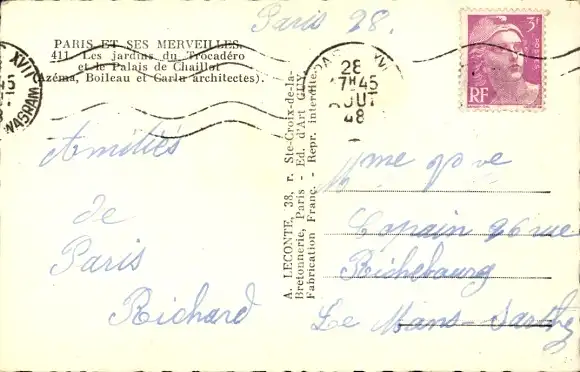 Paris 28.
PARIS ET SES MERVEILLES.
411. Les jardins du Trocadéro
et le Palais de Chaillot
(Azéma, Boileau et Carlu architectes).
XVII
WAGRAM
28
17H45
AOUT
48
XVII
3F
RF
Amitiés
de
Paris
Richard
A. LECONTE, 38, r. Ste-Croix-de-la-
Bretonnerie, Paris - Ed. d'Art GUY.
Fabrication Franç. - Repr. interdite.
Mme
Copain 26 rue
Richebourg
Le Mans-Sarthe